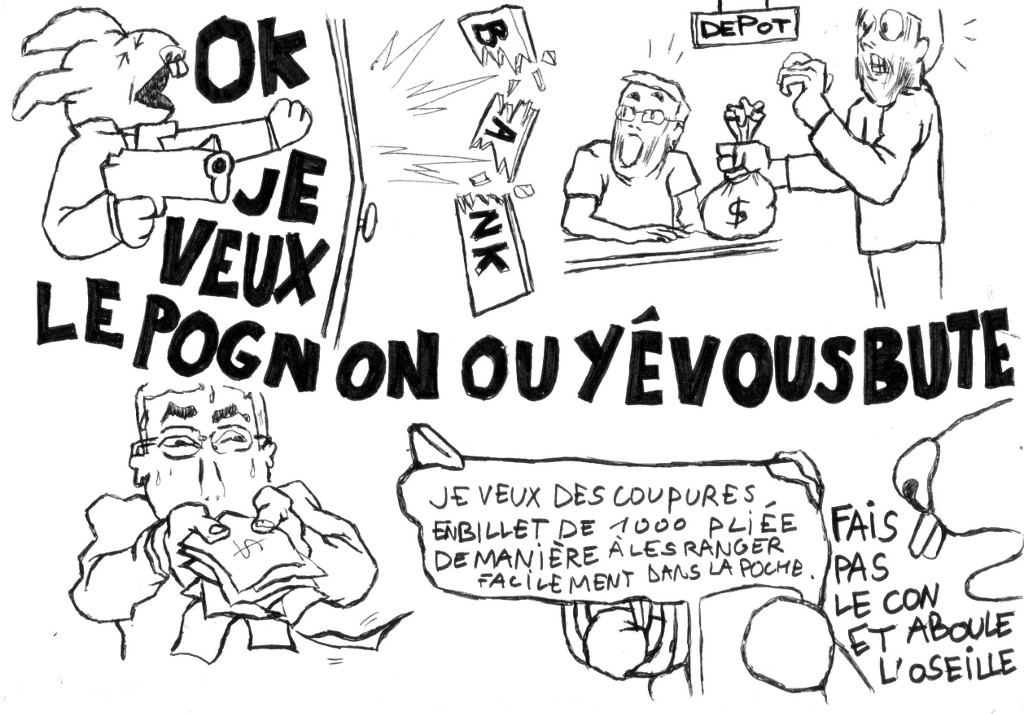 OK
JE
VEUX
LE POGNON OU YÉ VOUS BUTE
B
A
NK
DEPOT
$
$
JE VEUX DES COUPURES
EN BILLET DE 1000 PLIÉE
DE MANIÈRE À LES RANGER
FACILEMENT DANS LA POCHE.
FAIS
PAS
LE CON
ET ABOULE
L'OSEILLE